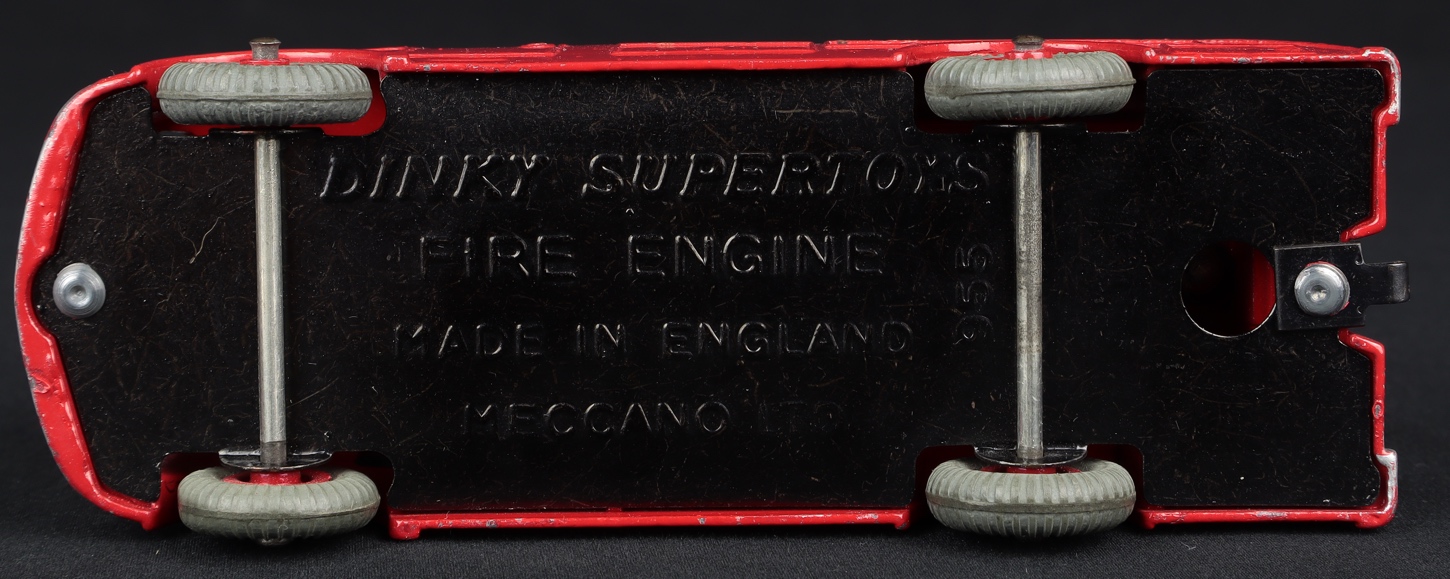 DINKY SUPERTOYS
FIRE ENGINE
955
MADE IN ENGLAND
MECCANO LTD